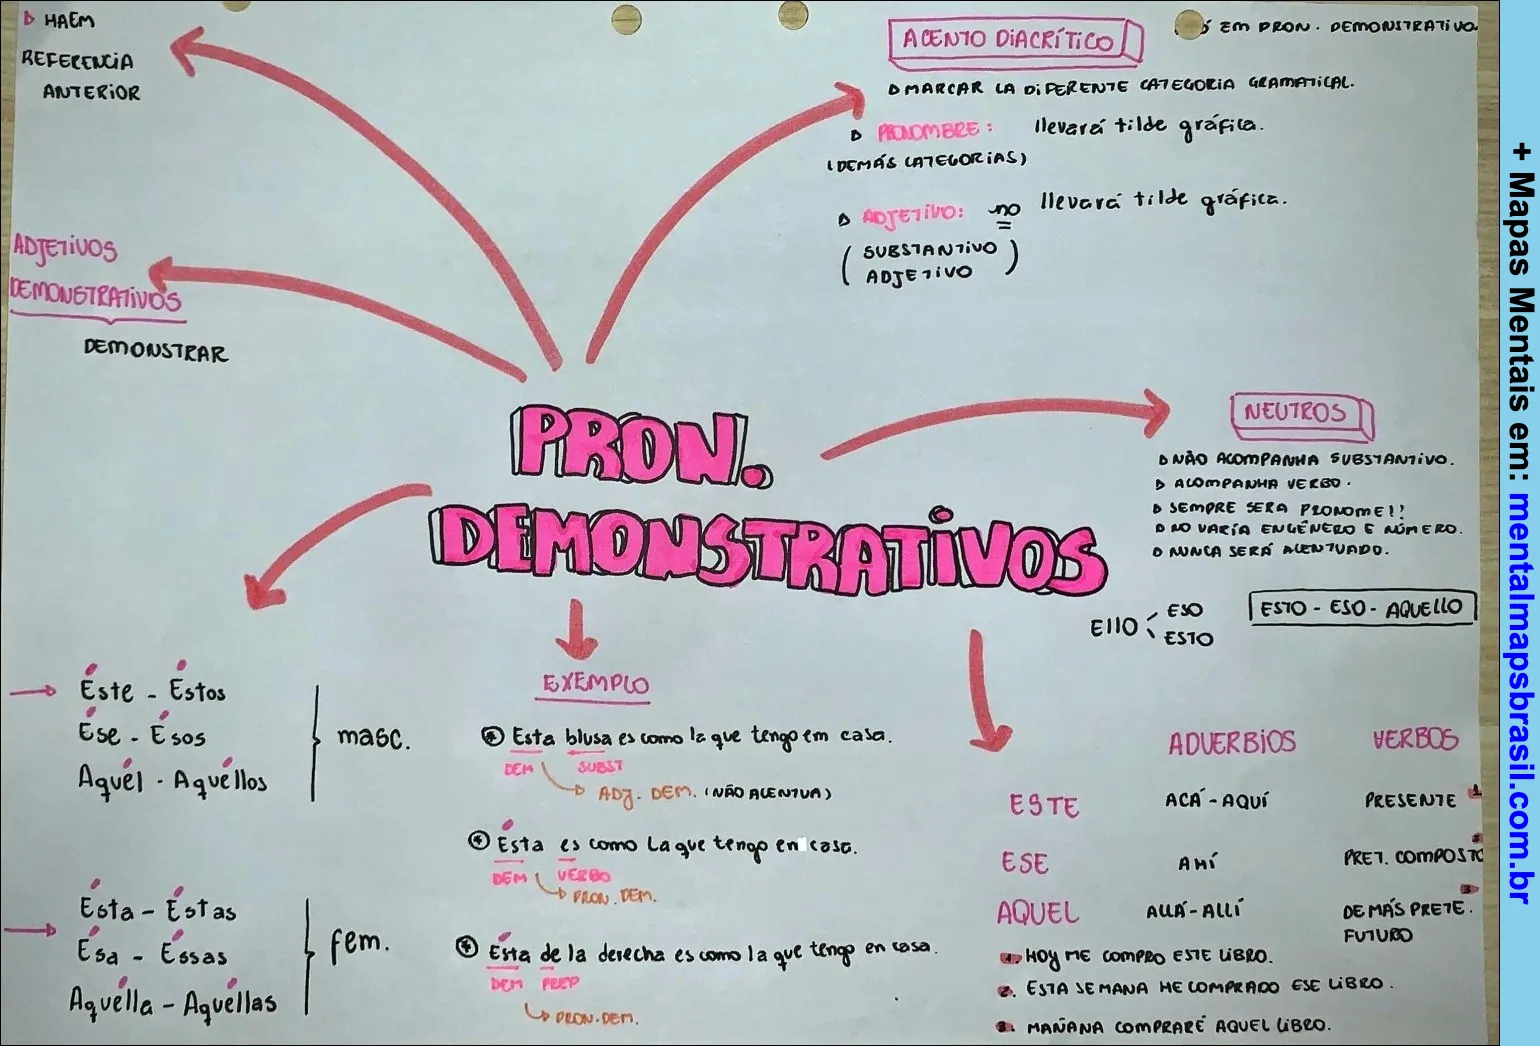 HAEM
REFERENCIA
ANTERIOR
ACENTO DIACRÍTICO
EM PRON. DEMONSTRATIVO
MARCAR LA DIFERENTE CATEGORIA GRAMATICAL.
PRONOMBRE: llevará tilde gráfica.
(DEMÁS CATEGORIAS)
ADJETIVO: no llevará tilde gráfica.
(SUBSTANTIVO
ADJETIVO)
ADJETIVOS
DEMONSTRATIVOS
DEMONSTRAR
PRON.
DEMONSTRATIVOS
NEUTROS
NÃO ACOMPANHA SUBSTANTIVO.
ACOMPANHA VERBO.
SEMPRE SERA PRONOME!!
NO VARÍA EN GÉNERO E NÚMERO.
NUNCA SERÁ ACENTUADO.
Ello < ESO
ESTO
ESTO - ESO - AQUELLO
Éste - Éstos
Ése - Ésos
Aquél - Aquéllos
masc.
Ésta - Éstas
Ésa - Éssas
Aquélla - Aquéllas
fem.
EXEMPLO
Esta blusa es como la que tengo em casa.
DEM SUBST
ADJ. DEM. (NÃO ACENTUA)
Ésta es como la que tengo en casa.
DEM VERBO
PRON. DEM.
Ésta de la derecha es como la que tengo en casa.
DEM PREP
PRON. DEM.
ADVERBIOS VERBOS
ESTE ACÁ - AQUÍ PRESENTE 1
ESE AHÍ PRET. COMPOSTO 2
AQUEL ALLÁ - ALLÍ DEMÁS PRETE. 3
FUTURO
1. HOY ME COMPRO ESTE LIBRO.
2. ESTA SEMANA HE COMPRADO ESE LIBRO.
3. MAÑANA COMPRARÉ AQUEL LIBRO.
+ Mapas Mentais em: mentalmapsbrasil.com.br